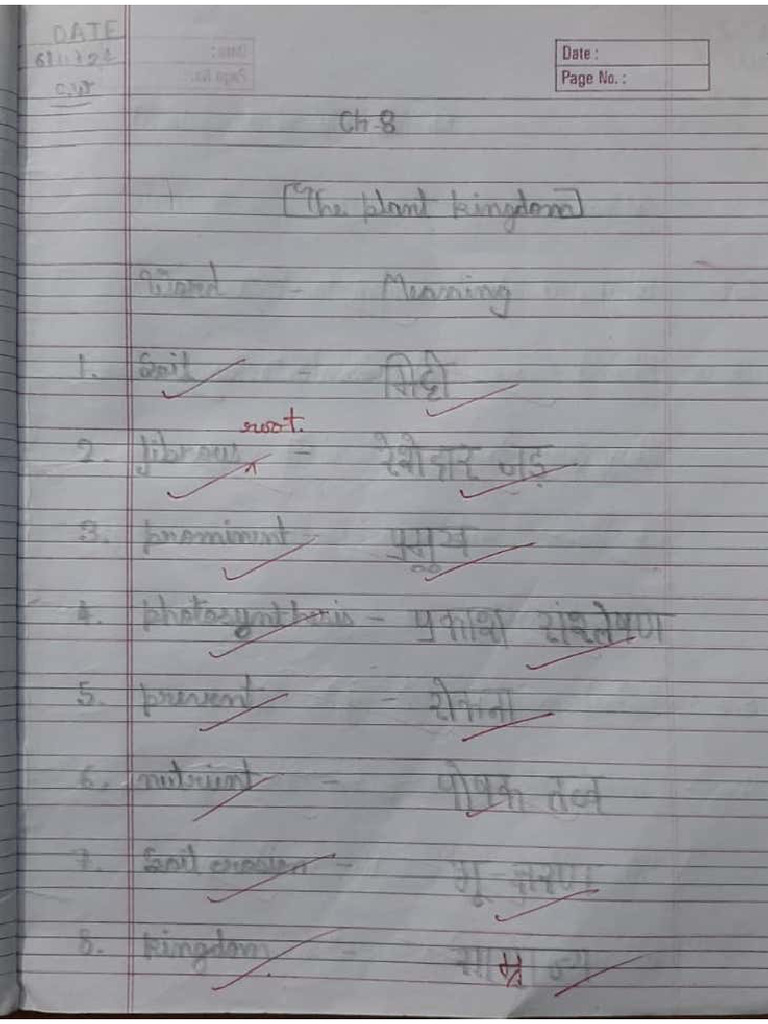 DATE
C.W
Date :
Page No. :
Ch-8
[The plant kingdom]
Word - Meaning
1. Soil - मिट्टी
root.
2. fibrous - रेशेदार जड़
3. prominent - प्रमुख
4. photosynthesis - प्रकाश संश्लेषण
5. prevent - रोकना
6. nutrient - पोषक तत्व
7. Soil erosion - भू-क्षरण
8. kingdom - साम्राज्य